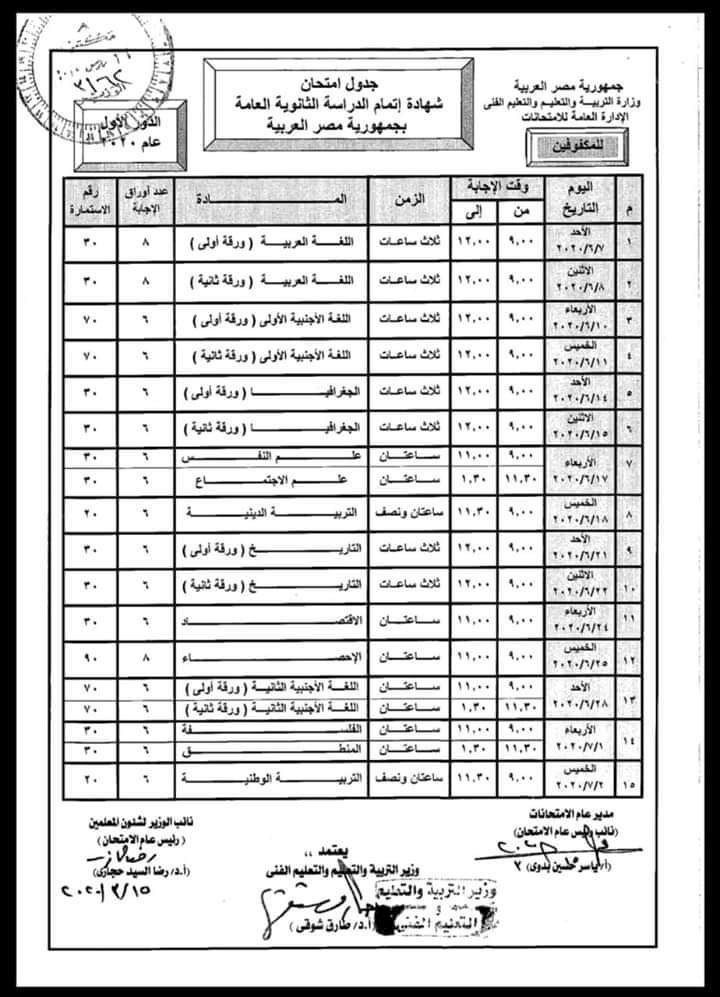 جمهورية مصر العربية
وزارة التربية والتعليم والتعليم الفنى
الإدارة العامة للامتحانات
للمكفوفين
جدول امتحان
شهادة إتمام الدراسة الثانوية العامة
بجمهورية مصر العربية
الدور الأول
عام ٢٠٢٠
م اليوم التاريخ وقت الإجابة من إلى الزمن المــادة عدد أوراق الإجابة رقم الاستمارة
١ الأحد ٢٠٢٠/٦/٧ ٩,٠٠ ١٢,٠٠ ثلاث ساعات اللغة العربية ( ورقة أولى ) ٨ ٣٠
٢ الاثنين ٢٠٢٠/٦/٨ ٩,٠٠ ١٢,٠٠ ثلاث ساعات اللغة العربية ( ورقة ثانية ) ٨ ٣٠
٣ الأربعاء ٢٠٢٠/٦/١٠ ٩,٠٠ ١٢,٠٠ ثلاث ساعات اللغة الأجنبية الأولى ( ورقة أولى ) ٦ ٧٠
٤ الخميس ٢٠٢٠/٦/١١ ٩,٠٠ ١٢,٠٠ ثلاث ساعات اللغة الأجنبية الأولى ( ورقة ثانية ) ٦ ٧٠
٥ الأحد ٢٠٢٠/٦/١٤ ٩,٠٠ ١٢,٠٠ ثلاث ساعات الجغرافيا ( ورقة أولى ) ٦ ٣٠
٦ الاثنين ٢٠٢٠/٦/١٥ ٩,٠٠ ١٢,٠٠ ثلاث ساعات الجغرافيا ( ورقة ثانية ) ٦ ٣٠
٧ الأربعاء ٢٠٢٠/٦/١٧ ٩,٠٠ ١١,٠٠ ساعتان علم النفس ٦ ٣٠
١١,٣٠ ١,٣٠ ساعتان علم الاجتماع ٦ ٣٠
٨ الخميس ٢٠٢٠/٦/١٨ ٩,٠٠ ١١,٣٠ ساعتان ونصف التربية الدينية ٦ ٢٠
٩ الأحد ٢٠٢٠/٦/٢١ ٩,٠٠ ١٢,٠٠ ثلاث ساعات التاريخ ( ورقة أولى ) ٦ ٣٠
١٠ الاثنين ٢٠٢٠/٦/٢٢ ٩,٠٠ ١٢,٠٠ ثلاث ساعات التاريخ ( ورقة ثانية ) ٦ ٣٠
١١ الأربعاء ٢٠٢٠/٦/٢٤ ٩,٠٠ ١١,٠٠ ساعتان الاقتصاد ٦ ٣٠
١٢ الخميس ٢٠٢٠/٦/٢٥ ٩,٠٠ ١١,٠٠ ساعتان الإحصاء ٨ ٩٠
١٣ الأحد ٢٠٢٠/٦/٢٨ ٩,٠٠ ١١,٠٠ ساعتان اللغة الأجنبية الثانية ( ورقة أولى ) ٦ ٧٠
١١,٣٠ ١,٣٠ ساعتان اللغة الأجنبية الثانية ( ورقة ثانية ) ٦ ٧٠
١٤ الأربعاء ٢٠٢٠/٧/١ ٩,٠٠ ١١,٠٠ ساعتان الفلسفة ٦ ٣٠
١١,٣٠ ١,٣٠ ساعتان المنطق ٦ ٣٠
١٥ الخميس ٢٠٢٠/٧/٢ ٩,٠٠ ١١,٣٠ ساعتان ونصف التربية الوطنية ٦ ٢٠
مدير عام الامتحانات
(نائب رئيس عام الامتحان)
أ/ ياسر حسين بدوى
يعتمد ,,
وزير التربية والتعليم والتعليم الفنى
( أ.د/ طارق شوقى )
وزير التربية والتعليم
و
التعليم الفنى
نائب الوزير لشئون المعلمين
( رئيس عام الامتحان )
أ.د/ رضا السيد حجازى
٢٠٢٠/٣/١٥